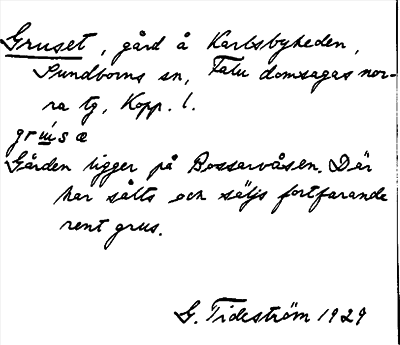 Gruset, gård å Karlsbyheden,
Sundborns sn, Falu domsagas nor-
ra tg, Kopp. l.
gru̇sæ
Gården ligger på Bosservåsen. Där
har sålts och säljs fortfarande
rent grus.
G. Tideström 1929